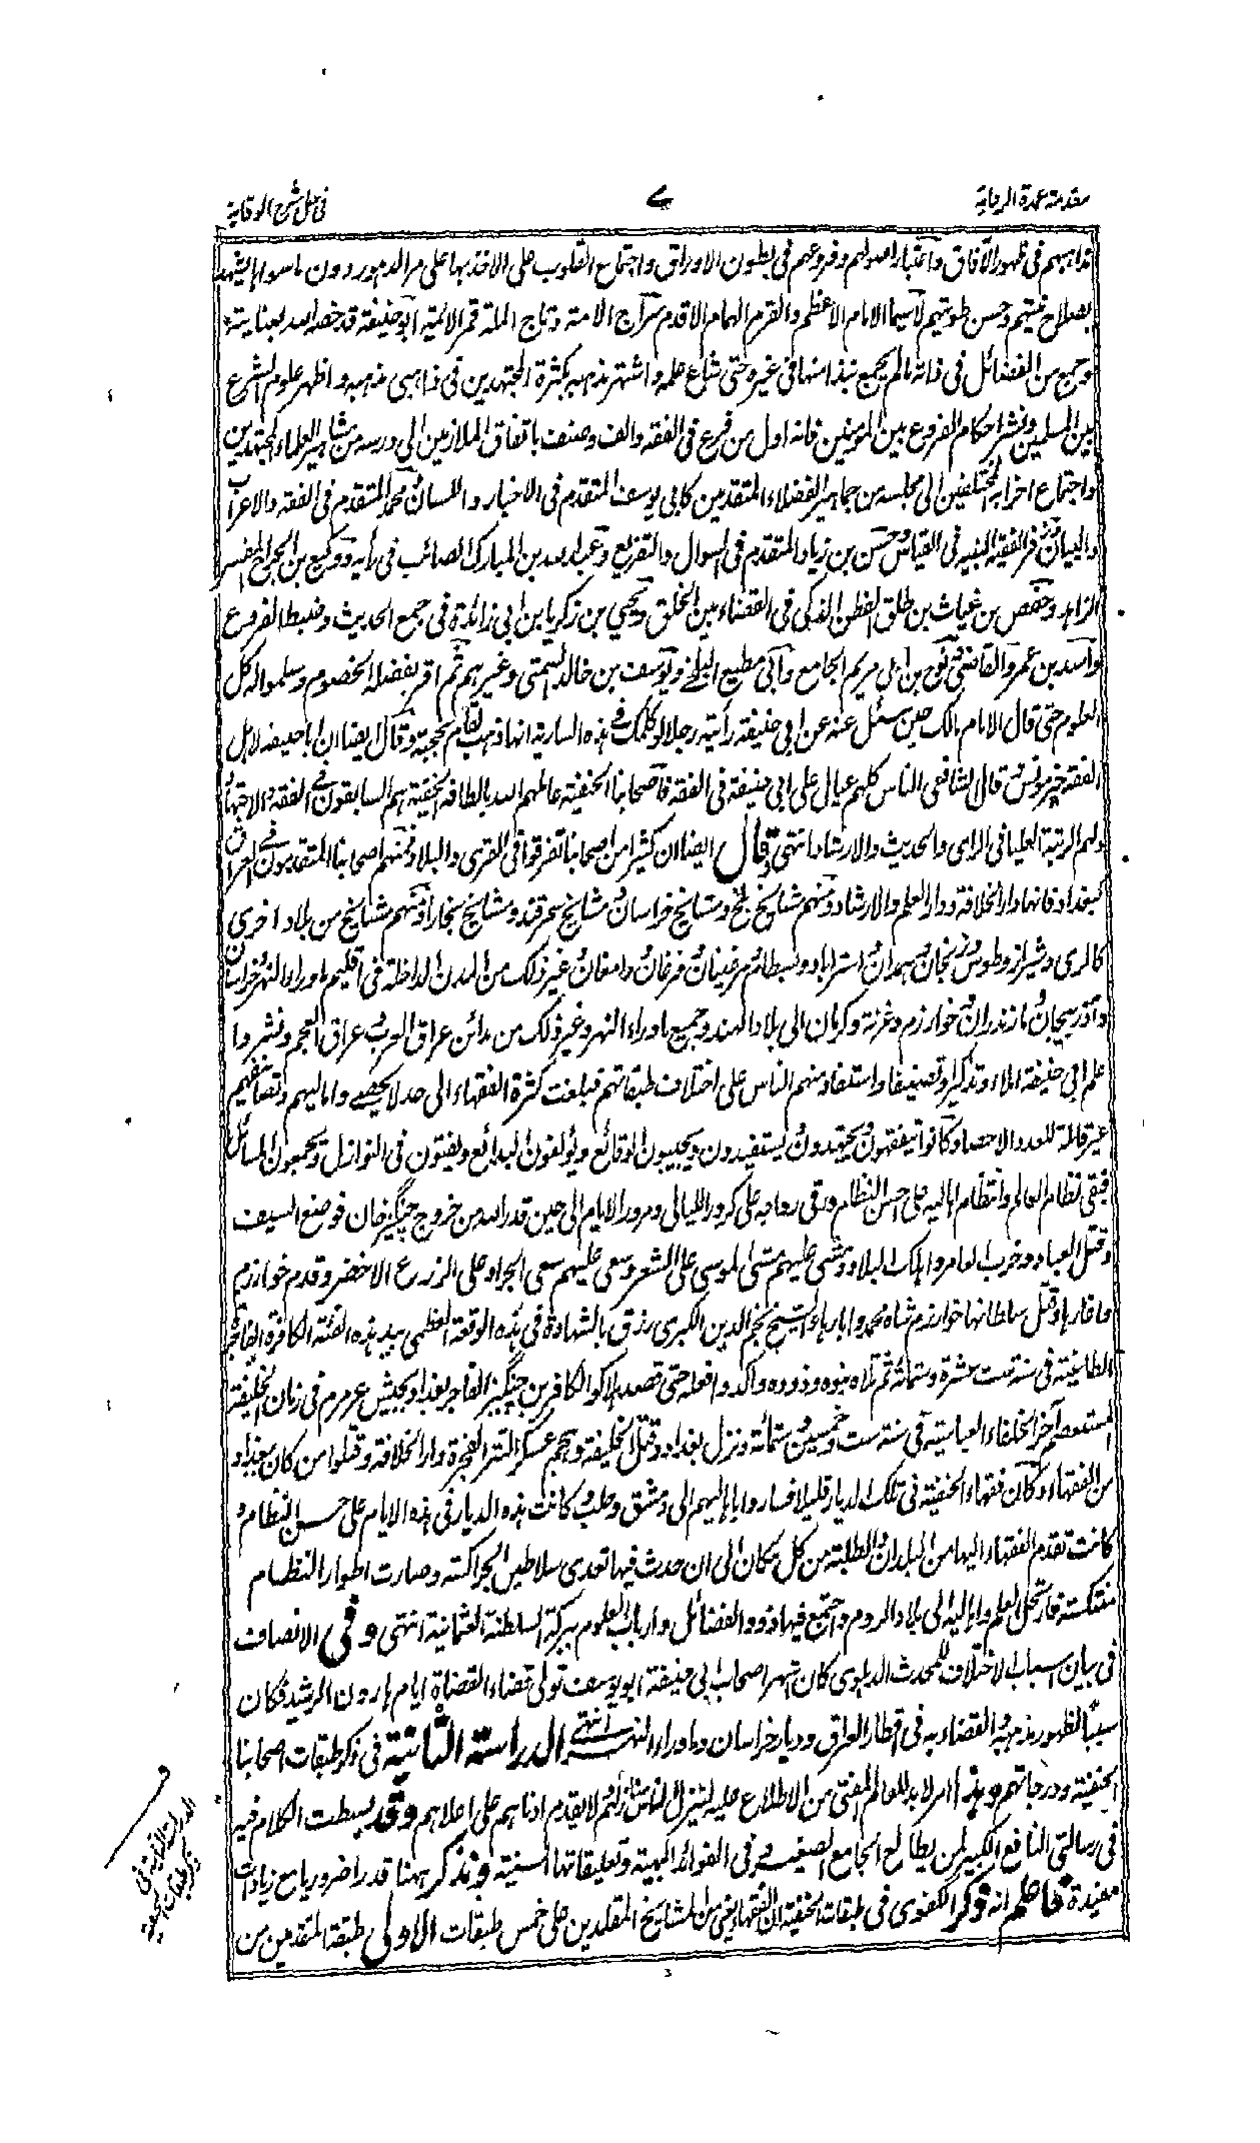 مقدمة عمدة الرعاية
٧
في حل شرح الوقاية
مذاهبهم في ظهور الآفاق واعتبار اصولهم وفروعهم في بطون الاوراق واجتماع القلوب على الاخذ بها على مر الدهور دون ما سواها يشهد
بصلاح نيتهم وحسن طويتهم لاسيما الامام الاعظم والقرم الهمام الاقدم سراج الامة وتاج الملة قمر الائمة ابو حنيفة قد خصه الله بعنايته
وجمع من الفضائل في ذاته ما لم يجمع نبذا منها في غيره حتى شاع علمه واشتهر مذهبه بكثرة المجتهدين في ذاهبي مذهبه واظهر علوم الشرع
بين المسلمين ونشر احكام الفروع بين المؤمنين فانه اول من فرع في الفقه والف وصنف باتفاق الملازمين الى درسه من مشاهير العلماء المجتهدين
واجتماع احزابه المختلفين الى مجلسه من جماهير الفضلاء المتقدمين كابي يوسف المتقدم في الاخبار واللسان ومحمد المتقدم في الفقه والاعراب
والبيان وزفر الفقيه النبيه في القياس وحسن بن زياد المتقدم في السوال والتفريع وعبد الله بن المبارك الصائب في رأيه ووكيع بن الجراح المفسر
الزاهد وحفص بن غياث بن طلق الفطن الذكي في القضاء بين الخلق ويحيي بن زكريا بن ابي زائدة في جمع الحديث وضبط الفروع
واسد بن عمرو والقاضي نوح بن ابي مريم الجامع وابي مطيع البلخي ويوسف بن خالد السمتي وغيرهم ثم اقر بفضله الخصوم وسلموا له كل
العلوم حتى قال الامام مالك حين سئل عنه عن ابي حنيفة رأيته رجلا لو كلمك في هذه السارية انها ذهب لقام بحجته وقال ايضا ان اباحنيفة لاهل
الفقه خير مونس وقال الشافعي الناس كلهم عيال على ابي حنيفة في الفقه فاصحابنا الحنفية عاملهم الله بالطافه الخفية هم السابقون في الفقه والاجتهاد
ولهم الرتبة العليا في الراى والحديث والارشاد انتهى وقال ايضا ان كثيرا من اصحابنا تفرقوا في القرى والبلاد فمنهم اصحابنا المتقدمون في العراق
كبغداد فانها دار الخلافة ودار العلم والارشاد ومنهم مشايخ بلخ ومشايخ خراسان ومشايخ سمرقند ومشايخ بخارا ومنهم مشايخ من بلاد اخرى
كالرى وشيراز وطوس وزنجان وهمدان واستراباد وبسطام ومرغينان وفرغان ودامغان وغير ذلك من المدن الداخلة في اقليم ماوراء النهر وخراسان
وآذربيجان ومازندران وخوارزم وغزنة وكرمان الى بلاد الهند وجميع ماوراء النهر وغير ذلك من مدائن عراق العرب وعراق العجم ونشروا
علم ابي حنيفة املاء وتذكيرا وتصنيفا واستفاد منهم الناس على اختلاف طبقاتهم فبلغت كثرة الفقهاء الى حد لا يحصى واماليهم وتصانيفهم
غير قابلة للعدد والاحصاء وكانوا يتفقهون ويجتهدون ويستفيدون ويجيبون الوقائع ويؤلفون البدائع ويفتون في النوازل ويجمعون المسائل
فبقى نظام العالم وانتظام اهاليه على احسن النظام ورقى رواجه على كرور الليالي ومرور الايام الى حين قدر الله من خروج جنگيز خان فوضع السيف
وقتل العباد وخرب العامر واهلك البلاد ومشى عليهم مشى الموسى على الشعر وسعى عليهم سعى الجراد على الزرع الاخضر وقدم خوارزم
وما قاربها وقتل سلطانها خوارزم شاه محمد واباد اهلها والشيخ نجم الدين الكبرى رزق بالشهادة في هذه الوقعة العظمى بيد هذه الفئة الكافرة الفاجرة
الطاغية في سنة ست عشرة وستمائة ثم تلاه بنوه وذووه واكدوا فعله حتى قصد هلاكو الكافر بن جنگيز الفاجر بغداد بجيش عرمرم في زمان الخليفة
المستعصم آخر الخلفاء العباسية في سنة ست وخمسين وستمائة ونزل بغداد وقتل الخليفة وهجم عسكر التتر الفجرة دار الخلافة وقتلوا من كان ببغداد
من الفقهاء وكان فقهاء الحنفية في تلك الديار قليلا فساروا باهاليهم الى دمشق وحلب وكانت هذه الديار في هذه الايام على حسن النظام و
كانت تقدم الفقهاء اليها من البلدان والطلبة من كل مكان الى ان حدث فيها تعدى سلاطين الجراكسة وصارت اطوار النظام
منتكسة فارتحل العلم واهاليه الى بلاد الروم واجتمع فيها ذوو الفضائل وارباب العلوم ببركة السلطنة العثمانية انتهى وفي الانصاف
في بيان اسباب الاختلاف للمحدث الدهلوى كان اشهر اصحاب ابي حنيفة ابو يوسف تولى قضاء القضاة ايام هارون الرشيد فكان
سببا لظهور مذهبه والقضاء به في اقطار العراق وديار خراسان وماوراء النهر انتهى الدراسة الثانية في ذكر طبقات اصحابنا
الحنفية ودرجاتهم وهذا امر لا بد للعالم المفتي من الاطلاع عليه لينزل الناس منازلهم ولا يقدم ادناهم على اعلاهم وقد بسطت الكلام فيه
في رسالتي النافع الكبير لمن يطالع الجامع الصغير وفي الفوائد البهية وتعليقاتها السنية ونذكر ههنا قدرا ضروريا مع زيادات
مفيدة فاعلم انه ذكر الكفوى في طبقات الحنفية ان الفقهاء يعني من المشايخ المقلدين على خمس طبقات الاولى طبقة المتقدمين من
الدراسة الثانية في
ذكر طبقات الحنفية